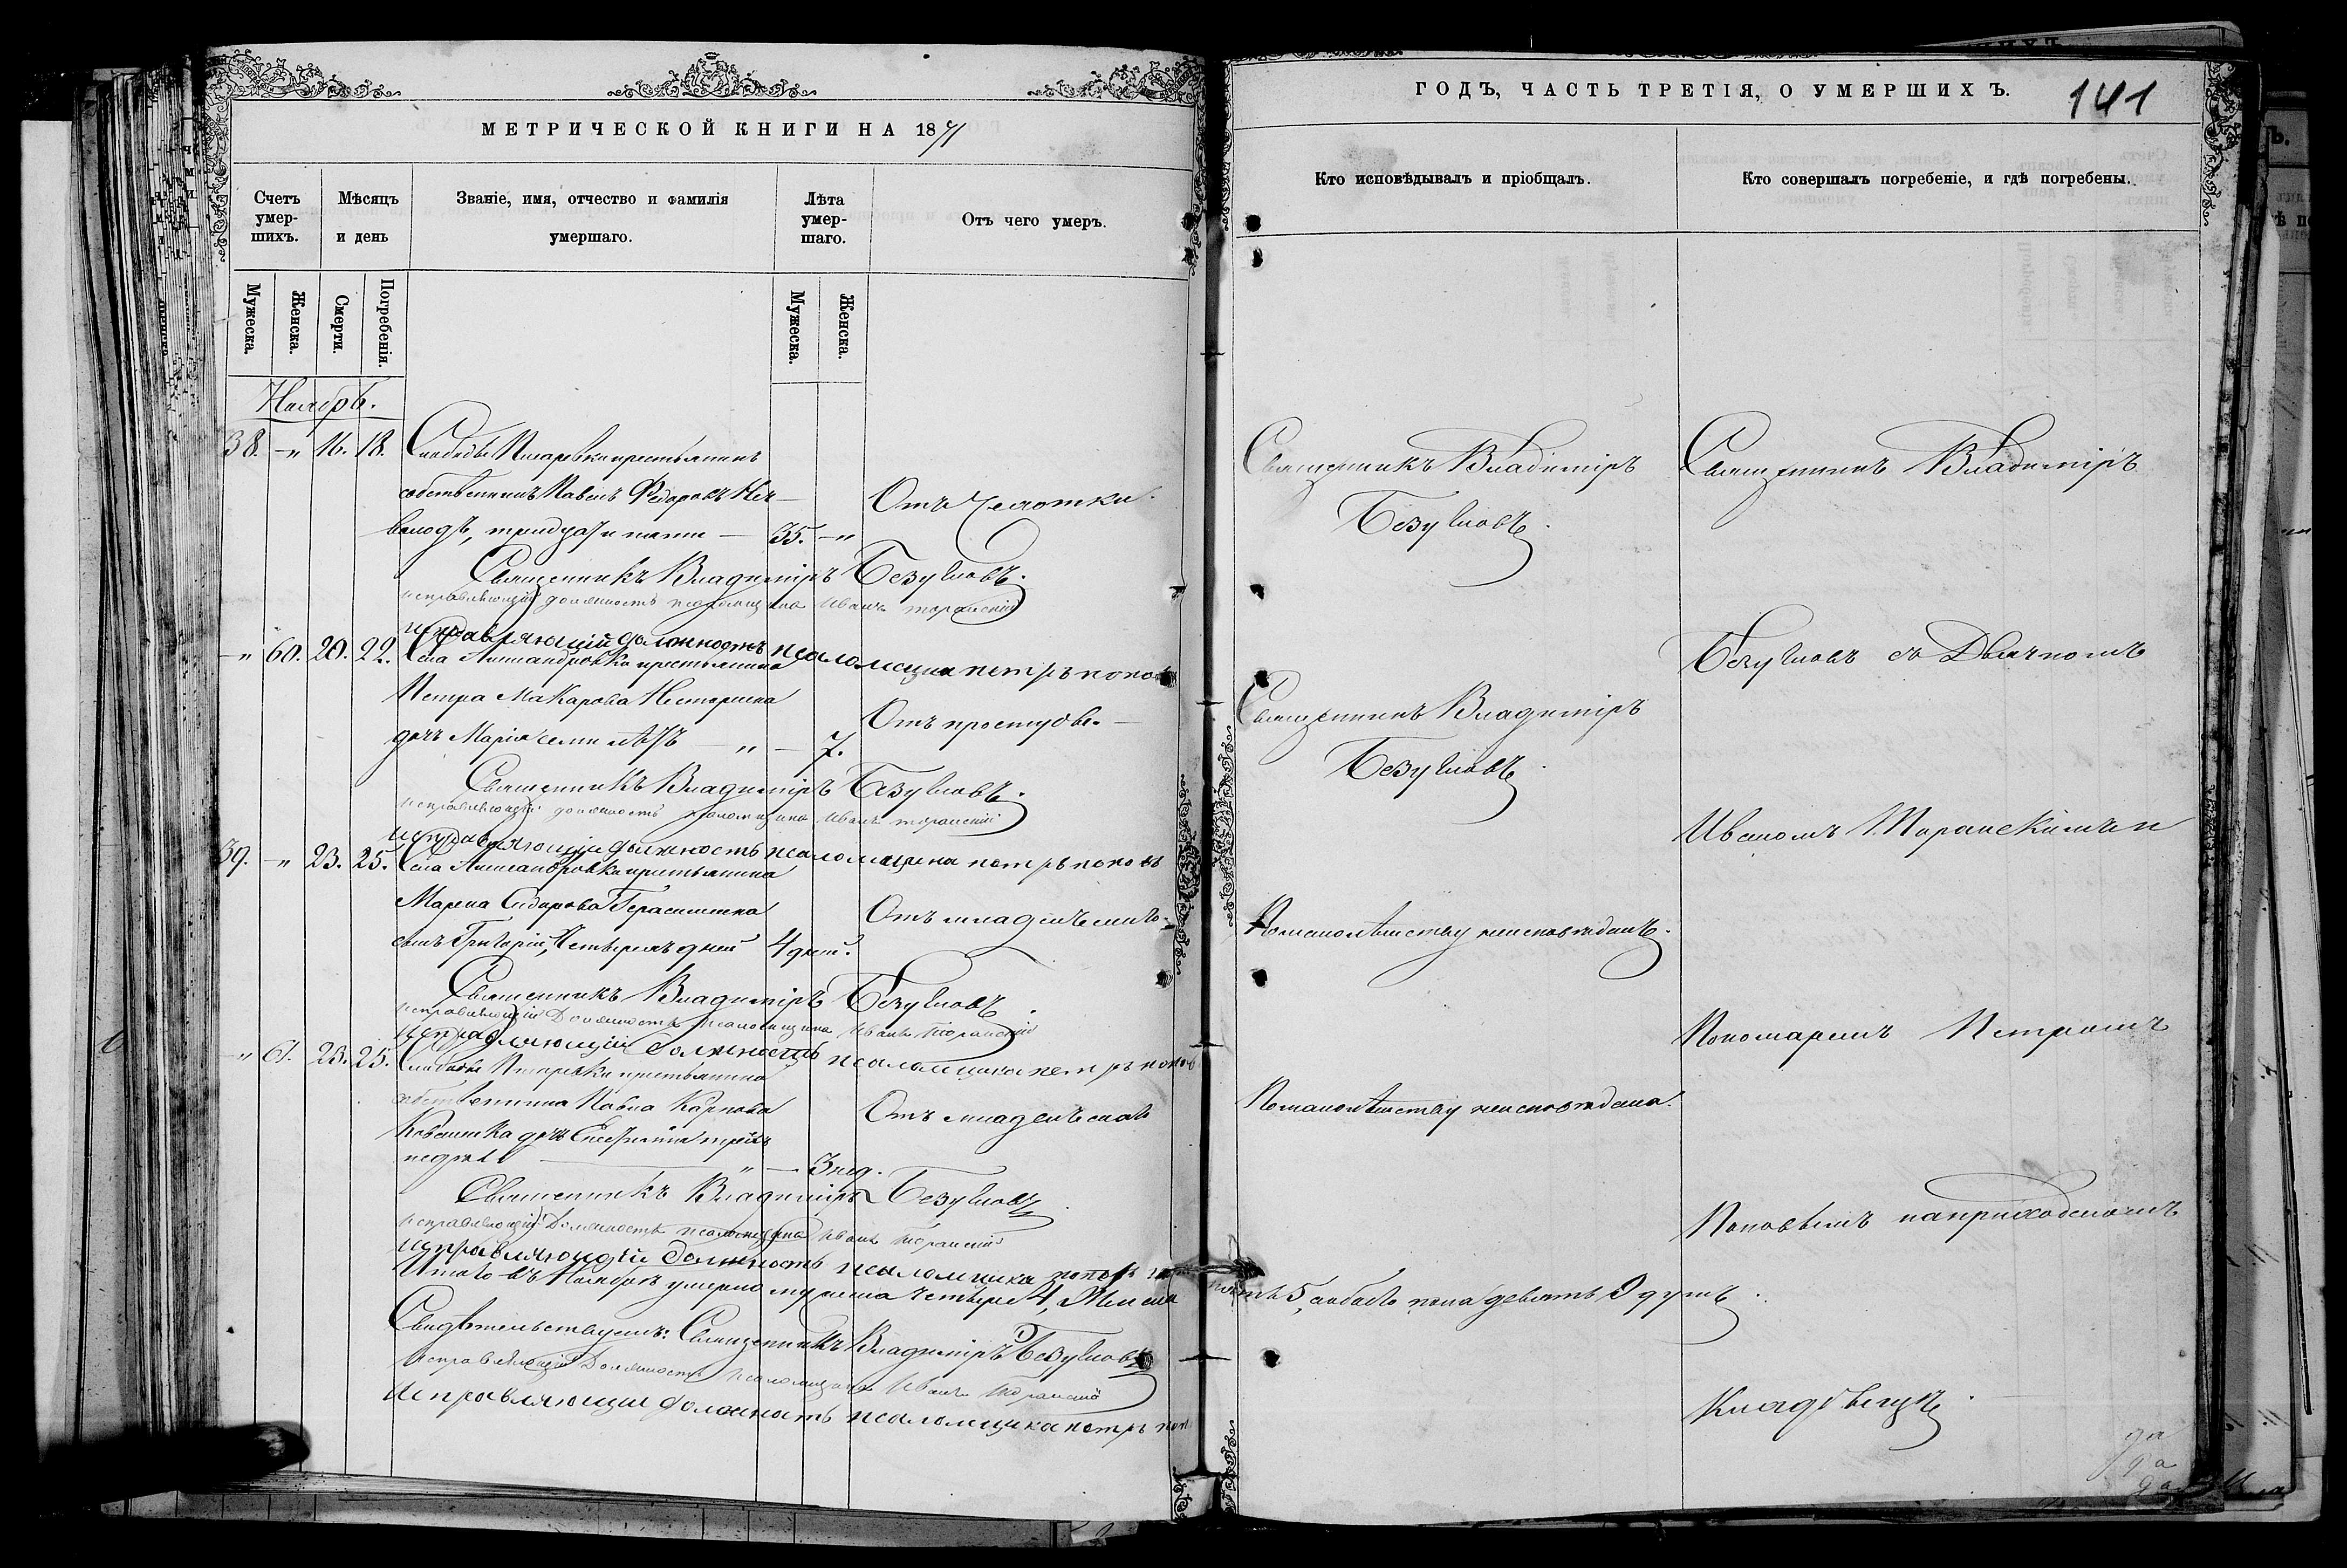 МЕТРИЧЕСКОЙ КНИГИ НА 1871
Счетъ умер-шихъ.
Мѣсяцъ и день
Званіе, имя, отчество и фамилія умершаго.
Лѣта умер-шаго.
Отъ чего умеръ.
Мужеска.
Женска.
Смерти.
Погребенія.
Мужеска.
Женска.
Ноябрь.
38. —„ 16. 18. Слободы Писаревки крестьянинъ
собственникъ Павелъ Федоровъ Не
володъ, тридцати пяти — 35. —„ Отъ Чахотки.
Священникъ Владиміръ Безугловъ.
исправляющій должность псаломщика Иванъ
исправляющій должность псаломщика петръ попов
—„ 60. 20. 22. Села Александровки крестьянина
Петра Макарова Нестеренка
дочь Марія семи лѣтъ —„— 7. Отъ простуды.
Священникъ Владиміръ Безугловъ.
исправляющій должность псаломщика Иванъ
исправляющій должность псаломщика петръ поповъ
39. —„ 23. 25. Села Александровки крестьянина
Марка Сидорова Герасименка
сынъ Григорій, Четырехъ дней 4 дней. Отъ младенческаго
Священникъ Владиміръ Безугловъ.
исправляющій Должность псаломщика Иванъ
исправляющій должность псаломщика петръ попов
„ 61. 23. 25. Слободы Писаревки крестьянина
собственника Павла Карпова
дочь трехъ Отъ младенческаго
недѣль „ — 3 нед.
Священникъ Владиміръ Безугловъ
исправляющій Должность псаломщика Иванъ
исправляющій должность псаломщика
Итого въ Ноябрѣ умерло мужеска четыре 4, Женска
Свидѣтельствуемъ: Священникъ Владиміръ Безугловъ
исправляющій Должность псаломщика Иванъ
исправляющій должность псаломщика петръ
ГОДЪ, ЧАСТЬ ТРЕТІЯ, О УМЕРШИХЪ.
141
Кто исповѣдывалъ и пріобщалъ.
Кто совершалъ погребеніе, и гдѣ погребены.
Священникъ Владиміръ
Безугловъ.
Священникъ Владиміръ
Безугловъ.
Помалолѣтству неисповѣданъ.
Помалолѣтству неисповѣдана.
пять 5, обоего пола девять 9 душъ.
Священникъ Владиміръ
Безугловъ съ Дьячкомъ
Иваномъ
Пономаремъ Петромъ
Поповымъ наприходскомъ
Кладбищѣ.